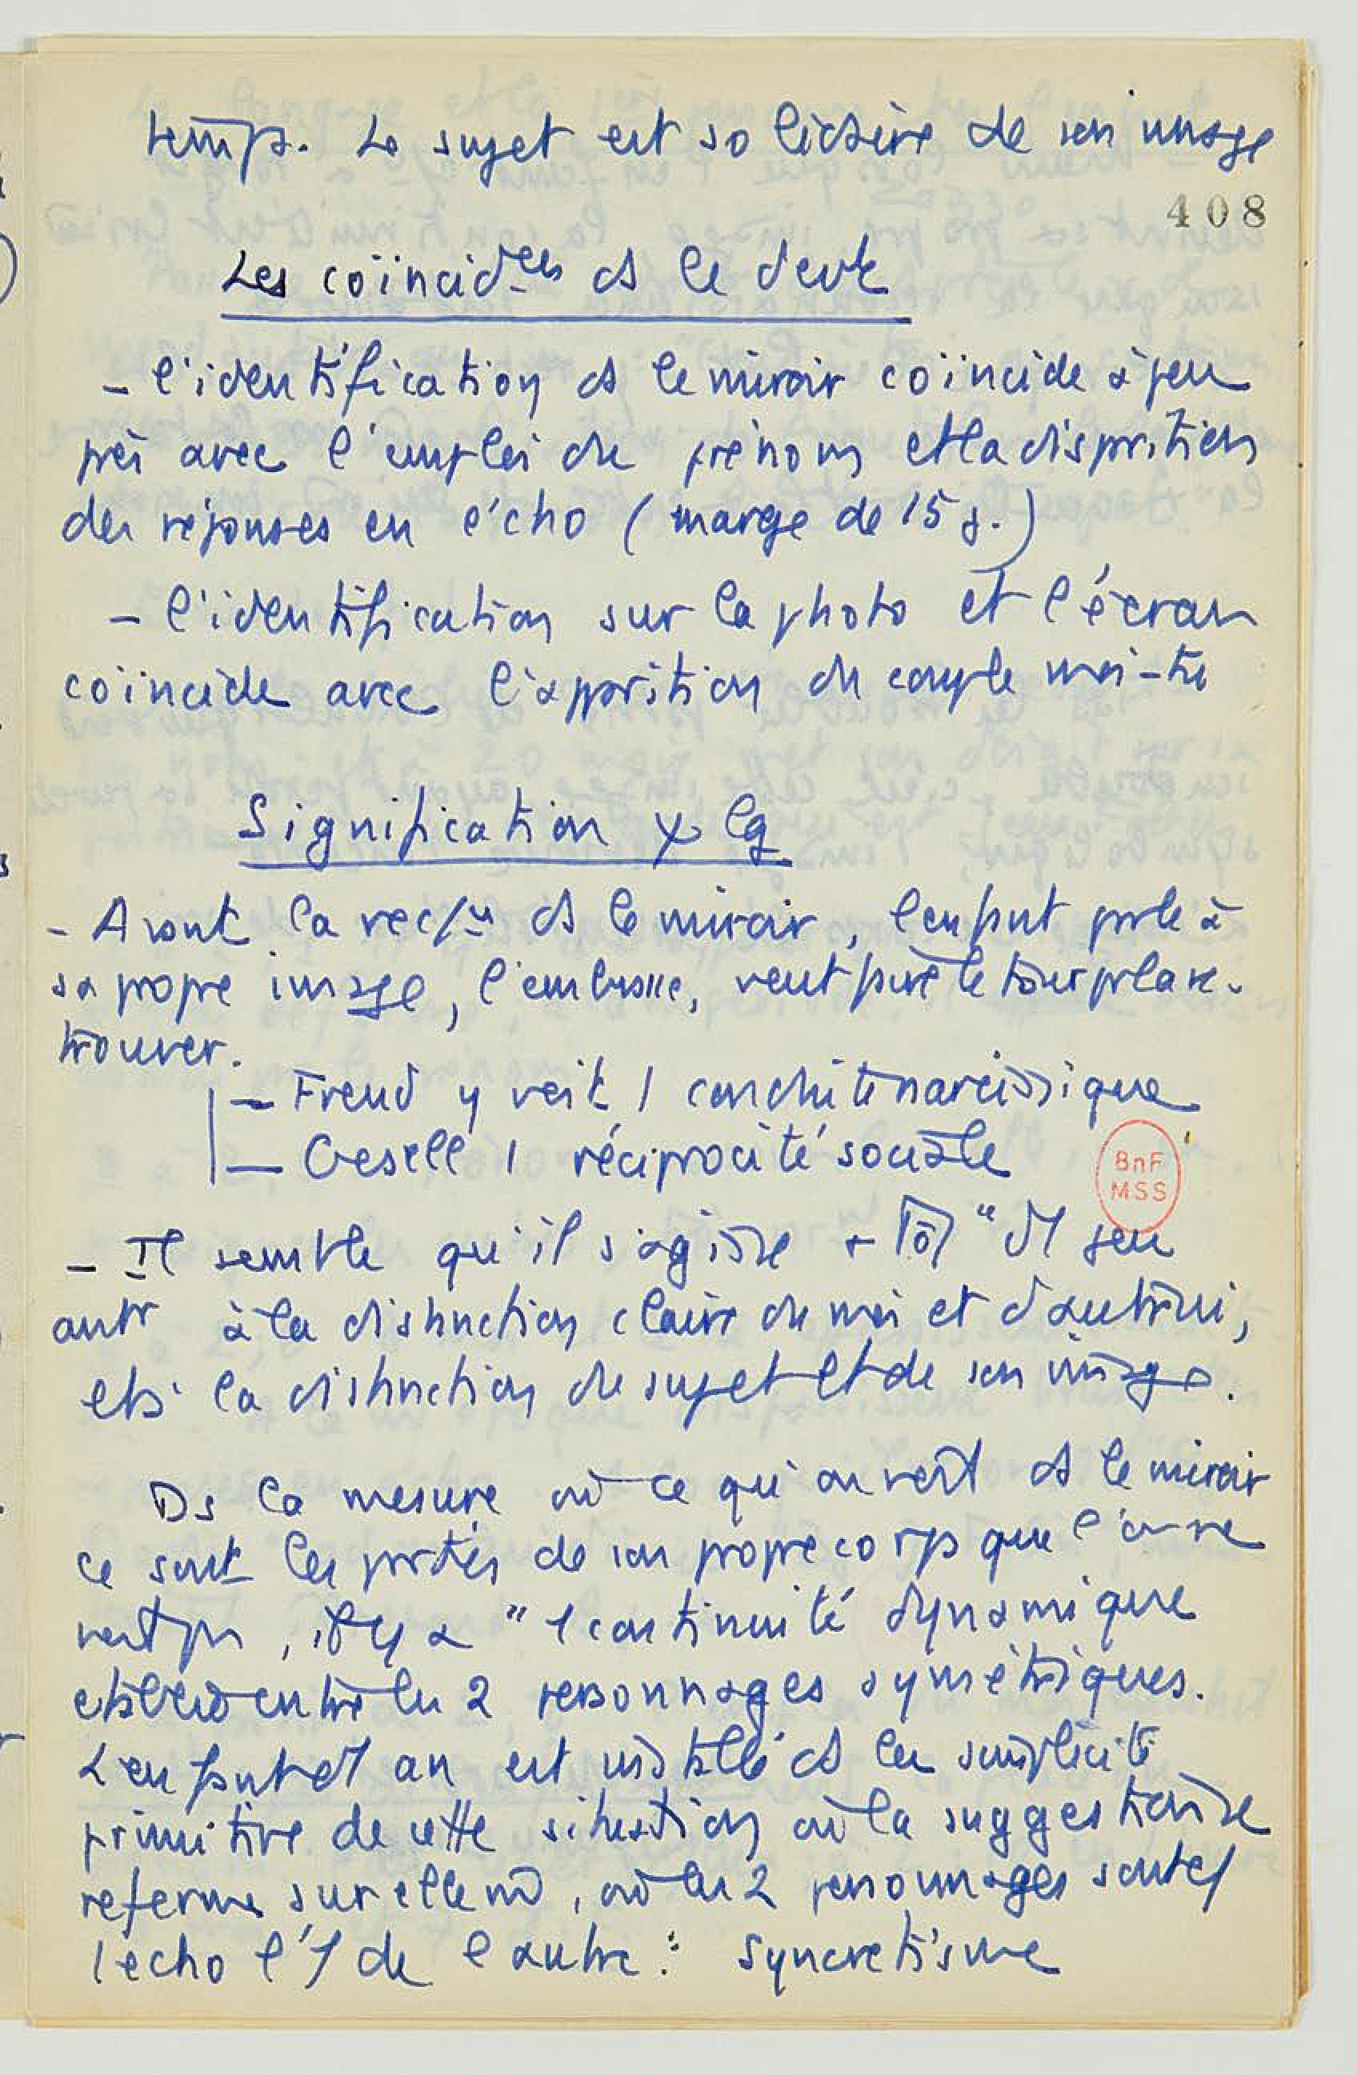 temps. Le sujet est solidaire de son image
408
Les coïncid_ces ds le devt
- l'identification ds le miroir coïncide à peu
près avec l'emploi du prénom et la disparition
des réponses en écho (marge de 15 j.)
- l'identification sur la photo et l'écran
coïncide avec l'apparition du couple moi-tu
Signification
- Avant la ds le miroir, l'enfant parle à
sa propre image, l'embrasse, veut faire le tour pr la re-
trouver.
- Freud y voit 1 conduite narcissique
- Gesell 1 réciprocité sociale
BnF
MSS
- Il semble qu'il s'agisse
antr à la distinction claire du moi et d'autrui,
et à la distinction du sujet et de son image.
Ds la mesure où ce qu'on voit ds le miroir
ce sont les parties de son propre corps que l'on ne
voit pas, il y a " 1 continuité dynamique
établie entre les 2 personnages symétriques.
L'enfant d'1 an est installé ds la simplicité
primitive de cette situation où la suggestion se
referme sur elle m̂, où les 2 personnages sont
l'écho l'1 de l'autre : syncretisme